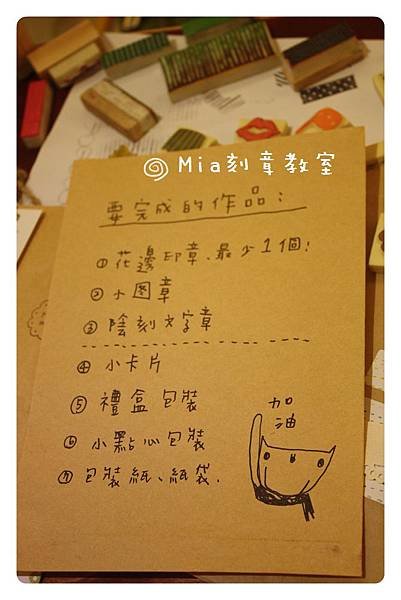 Mia刻章教室
要完成的作品:
①花邊印章、最少1個!
②小图章
③陰刻文字章
④小卡片
⑤禮盒包裝
⑥小點心包裝
⑦包裝紙、紙袋.
加油